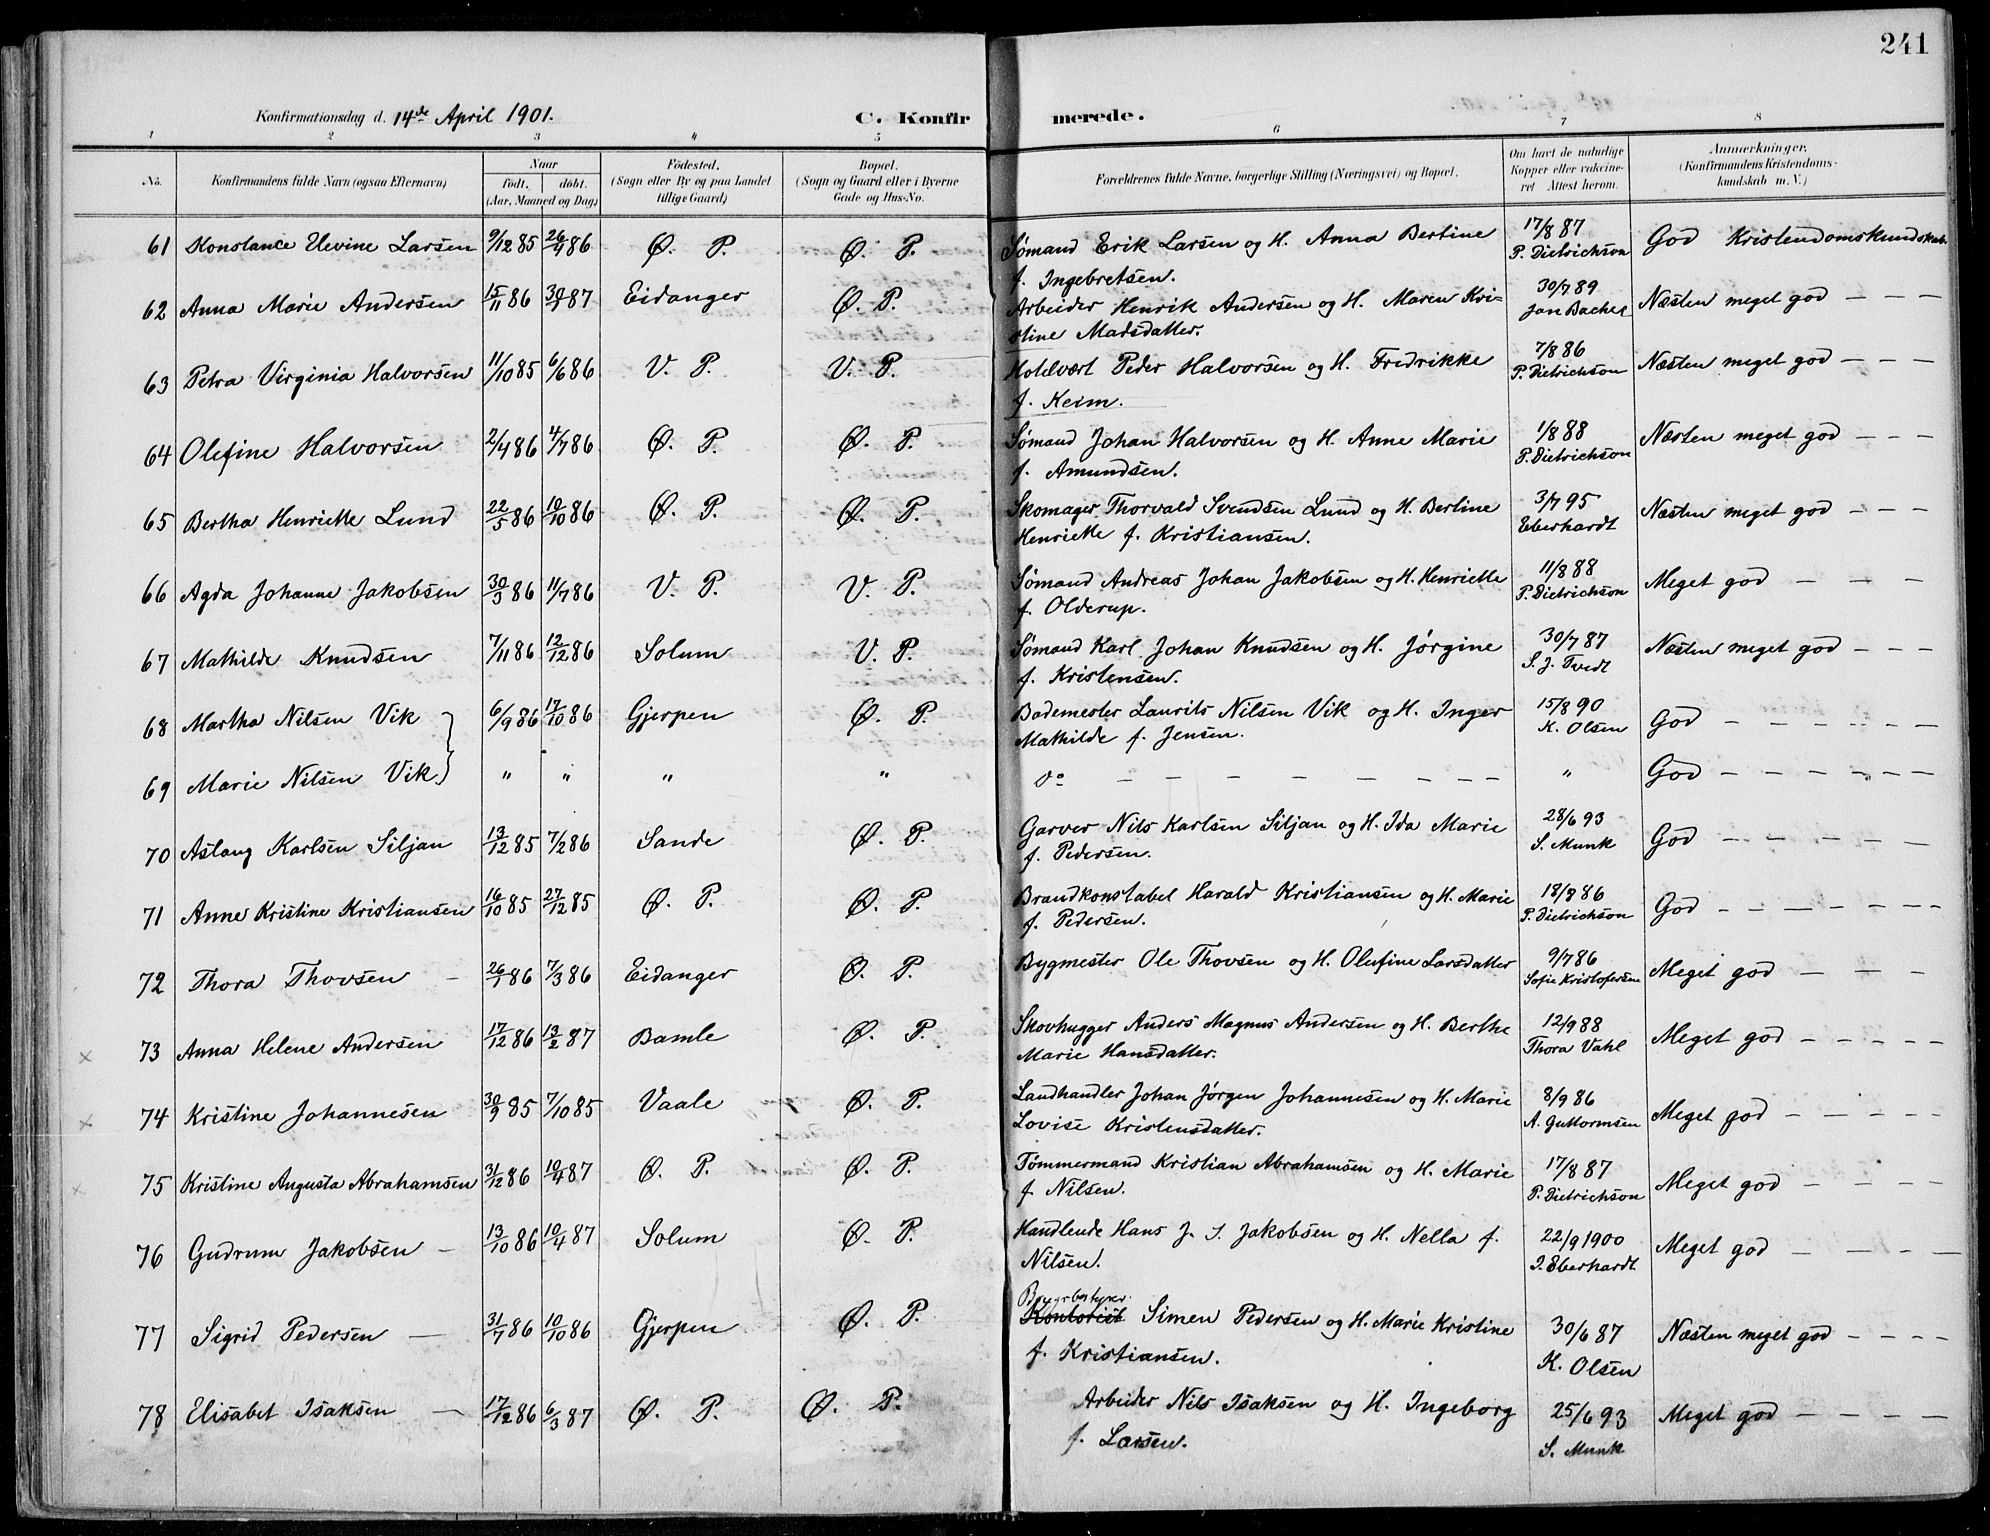 241
Konfirmationsdag d. 14de April 1901. C. Konfirmerede.
1 2 3 4 5 6 7 8
No. Konfirmandens fulde Navn (ogsaa Efternavn) Naar födt. döbt. (Aar, Maaned og Dag) Födested. (Sogn eller By og paa Landet tillige Gaard) Bopæl. (Sogn og Gaard eller i Byerne Gade og Hus-No. Forældrenes fulde Navne, borgerlige Stilling (Næringsvei) og Bopæl. Om havt de naturlige Kopper eller vakcineret. Attest herom. Anmærkninger. (Konfirmandens Kristendomskundskab m. V.)
61 Konstance Elevine Larsen 9/12 85 26/4 86 Ø. P. Ø. P. Sømand Erik Larsen og H. Anna Bertine 17/8 87 God Kristendomskundskab.
f. Ingebretsen. P. Dietrichson
62 Anna Marie Andersen 15/11 86 30/1 87 Eidanger Ø. P. Arbeider Henrik Andersen og H. Maren Kri- 30/7 89 Næsten meget god — — —
stine Madsdatter. Jan Backer
63 Petra Virginia Halvorsen 11/10 85 6/6 86 V. P. V. P. Holdvært Peder Halvorsen og H. Fredrikke 7/8 86 Næsten meget god — — —
f. Keim. P. Dietrichson
64 Olefine Halvorsen 2/4 86 4/7 86 Ø. P. Ø. P. Sømand Johan Halvorsen og H. Anne Marie 1/8 88 Næsten meget god — — —
f. Amundsen. P. Dietrichson
65 Bertha Henriette Lund 22/5 86 10/10 86 Ø. P. Ø. P. Skomager Thorvald Svendsen Lund og H. Bertine 3/7 95 Næsten meget god — — —
Henriette f. Kristiansen. Eberhardt
66 Agda Johanne Jakobsen 30/3 86 11/7 86 V. P. V. P. Sømand Andreas Johan Jakobsen og H. Henriette 11/8 88 Meget god — — — —
f. Olderup. P. Dietrichson
67 Mathilde Knudsen 7/11 86 12/12 86 Solum V. P. Sømand Karl Johan Knudsen og H. Jørgine 30/7 87 Næsten meget god — — —
f. Kristensen. S. J. Tvedt
68 Martha Nilsen Vik 6/9 86 17/10 86 Gjerpen Ø. P. Bademester Laurits Nilsen Vik og H. Inger 15/8 90 God — — — — — —
Mathilde f. Jensen. K. Olsen
69 Marie Nilsen Vik " " " " do — — — — — — — — " God — — — — — —
70 Aslaug Karlsen Siljan 13/12 85 7/2 86 Sande Ø. P. Garver Nils Karlsen Siljan og H. Ida Marie 28/6 93 God — — — — — —
f. Pedersen. S. Munk
71 Anne Kristine Kristiansen 16/10 85 27/12 85 Ø. P. Ø. P. Brandkonstabel Harald Kristiansen og H. Marie 18/8 86 God — — — — — —
f. Pedersen. P. Dietrichson
72 Thora Thovsen — 26/1 86 7/3 86 Eidanger Ø. P. Bygmester Ole Thovsen og H. Olufine Larsdatter 9/7 86 Meget god — — — —
Sofie Kristofersen
× 73 Anna Helene Andersen 17/12 86 13/2 87 Bamle Ø. P. Skovhugger Anders Magnus Andersen og H. Berthe 12/9 88 Meget god — — — — —
Marie Hansdatter. Thora Vahl
× 74 Kristine Johannesen 30/9 85 7/10 85 Vaale Ø. P. Landhandler Johan Jørgen Johannesen og H. Marie 8/9 86 Meget god — — — — —
Lovise Kristensdatter. A. Guttormsen
× 75 Kristine Augusta Abrahamsen 31/12 86 10/4 87 Ø. P. Ø. P. Tømmermand Kristian Abrahamsen og H. Marie 17/8 87 Meget god — — — — —
f. Nilsen. P. Dietrichson
76 Gudrun Jakobsen — 13/10 86 10/4 87 Solum Ø. P. Handlende Hans J. S. Jakobsen og H. Nella f. 22/9 1900 Meget god — — — —
Nilsen. J. Eberhardt
77 Sigrid Pedersen — 31/7 86 10/10 86 Gjerpen Ø. P. Kontorist Simen Pedersen og H. Marie Kristine 30/6 87 Næsten meget god — — — —
f. Kristiansen. K. Olsen
78 Elisabet Isaksen — 17/12 86 6/3 87 Ø. P. Ø. P. Arbeider Nils Isaksen og H. Ingeborg 25/6 93 Meget god — — — — —
f. Larsen. S. Munk